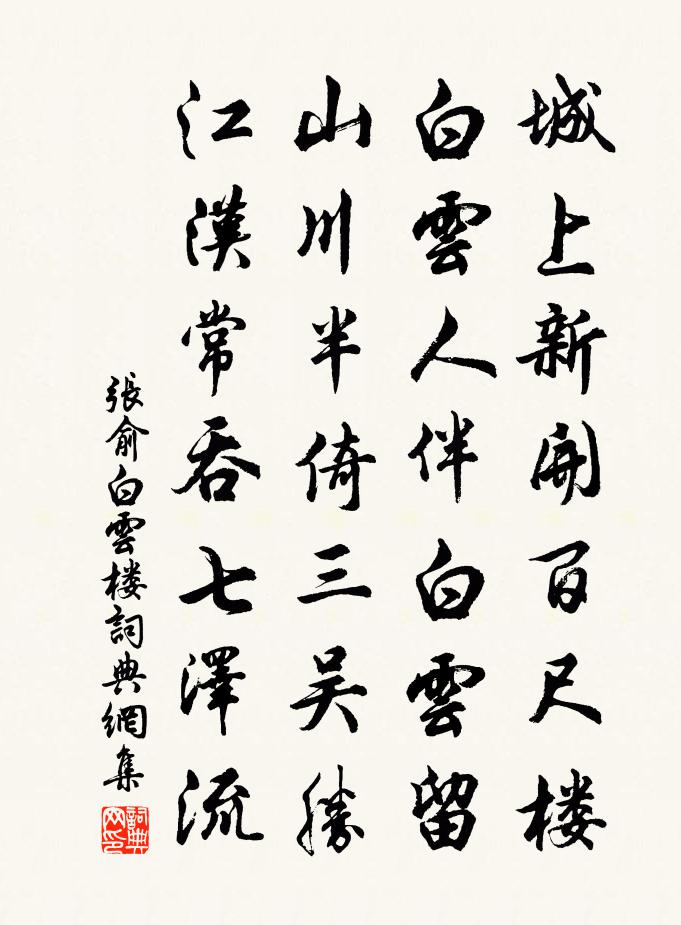 城上新開百尺楼
白雲人伴白雲留
山川半倚三吴勝
江漢常吞七澤流
張俞白雲楼詞典網集
詞典网印